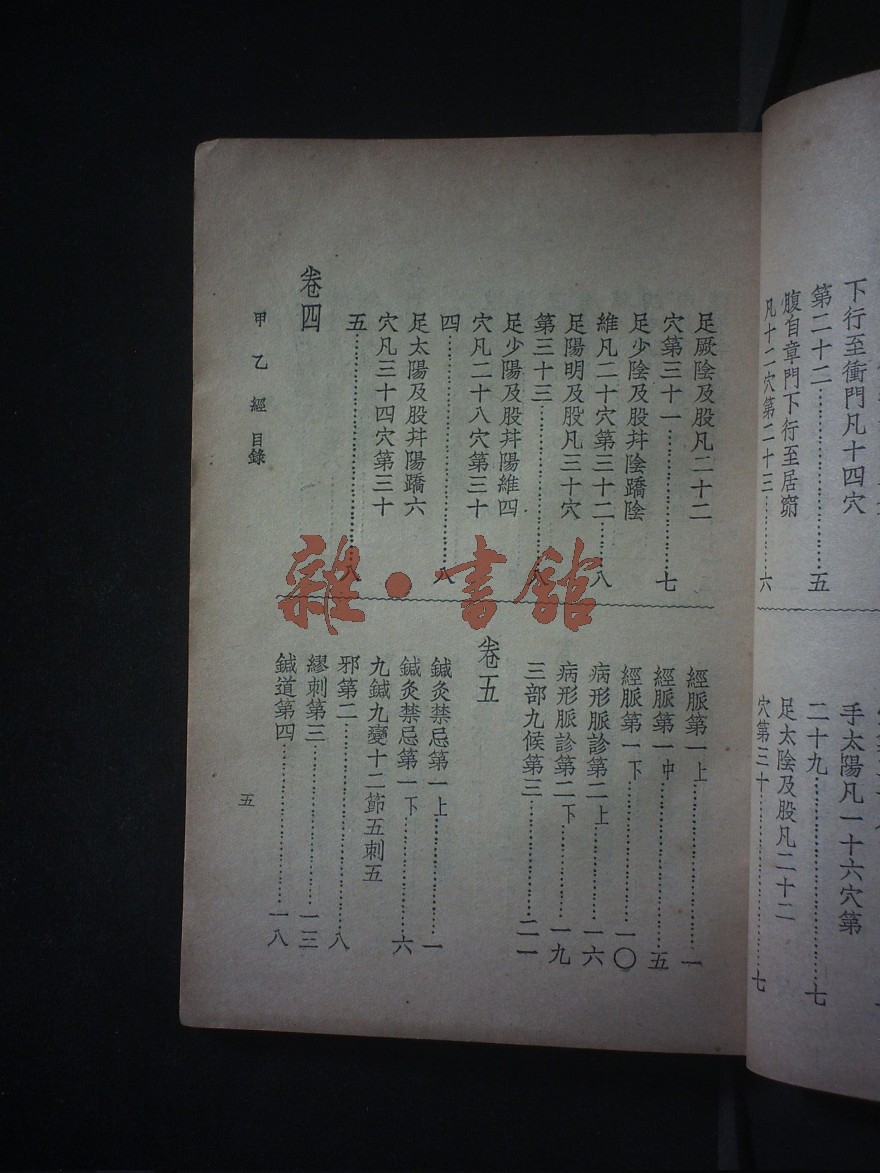 下行至衝門凡十四穴
第二十二……五
腹自章門下行至居窌
凡十二穴第二十三……六
手太陽凡一十六穴第
二十九……七
足太陰及股凡二十二
穴第三十……七
足厥陰及股凡二十二
穴第三十一……七
足少陰及股幷陰蹻陰
維凡二十穴第三十二……八
足陽明及股凡三十穴
第三十三……八
足少陽及股幷陽維四
穴凡二十八穴第三十
四……八
足太陽及股幷陽蹻六
穴凡三十四穴第三十
五……八
卷四
經脈第一上……一
經脈第一中……五
經脈第一下……一〇
病形脈診第二上……一六
病形脈診第二下……一九
三部九候第三……二一
卷五
鍼灸禁忌第一上……一
鍼灸禁忌第一下……六
九鍼九變十二節五刺五
邪第二……八
繆刺第三……一三
鍼道第四……一八
甲乙經 目錄
五
雜·書館